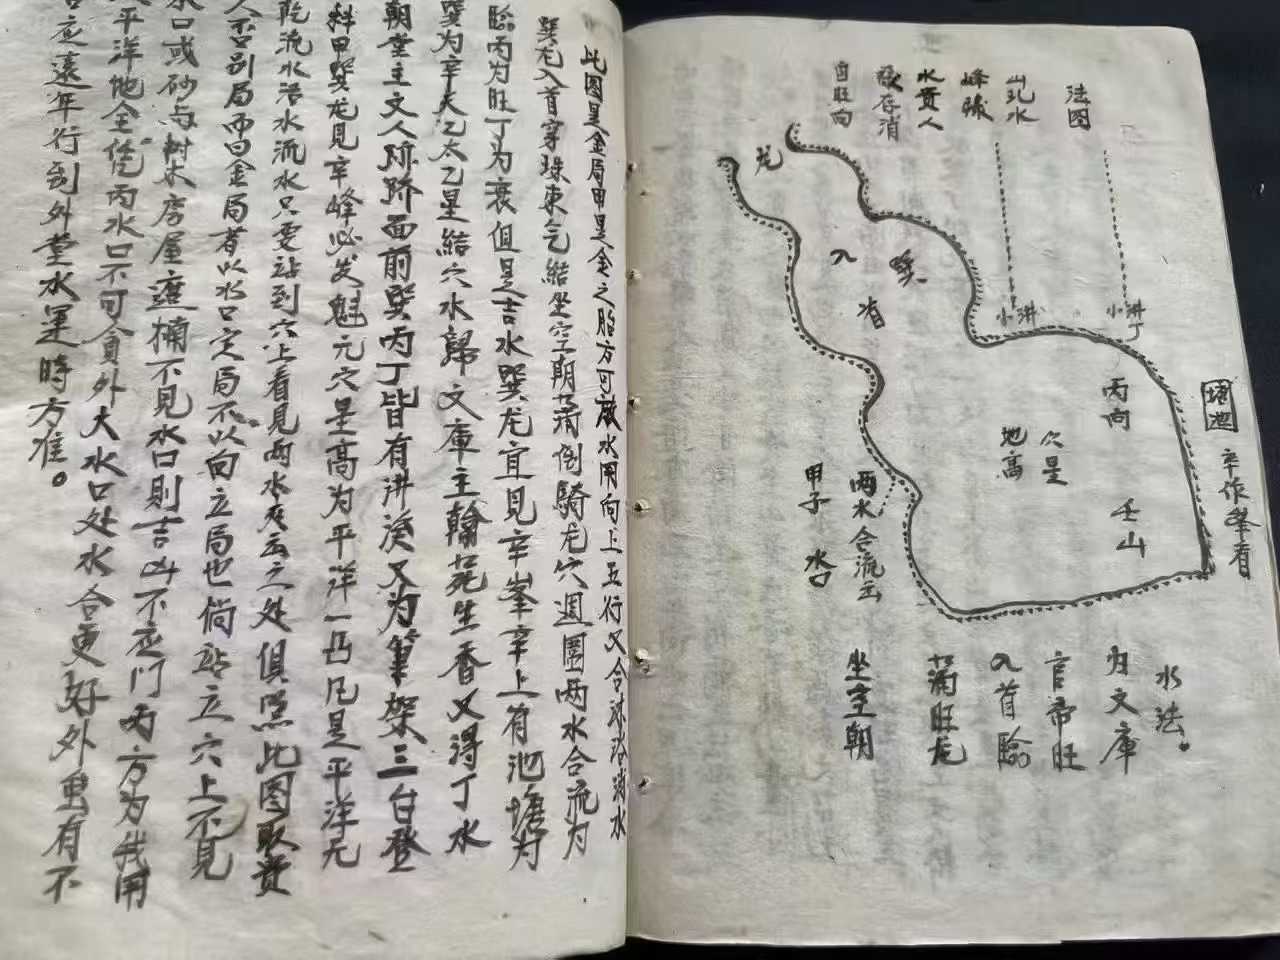 法图
山乳水
峰襯
水貴人
敬存消
自旺向
龙
入
巽
首
小洪
小洪
丁
丙向
穴是
地高
壬山
塘池
辛作峯看
两水合流出
甲子
水口
水法。
归文庫
官帝旺
入首臨
蒲旺龙
坐空朝
此图是金局甲是金之胎方可放水用向上五行又合沐浴消水
巽龙入首穿珠束气結坐空朝蒲倒騎龙穴週圍两水合流为
臨丙为旺丁为衰但是吉水巽龙宜見辛峯辛上有池塘为
巽为辛天乙太乙星結穴水歸文庫主翰苑生香又得丁水
朝堂主文人跡跡面前巽丙丁皆有洪溪又为筆架三台登
科甲巽龙見辛峰必发魁元穴是高为平洋一凸凡是平洋无
乾流水活水流水只要站到穴上看見两水夾出之处俱照此图取貴
人不吕别局而曰金局者以水口定局不以向立局也倘站立穴上不見
水口或砂与树木房屋遮桶不見水口則吉凶不应门丙方为我用
平洋地全凭丙水口不可貪外大水口处水合更好外里有不
吉应遠年行到外堂水運時方准。